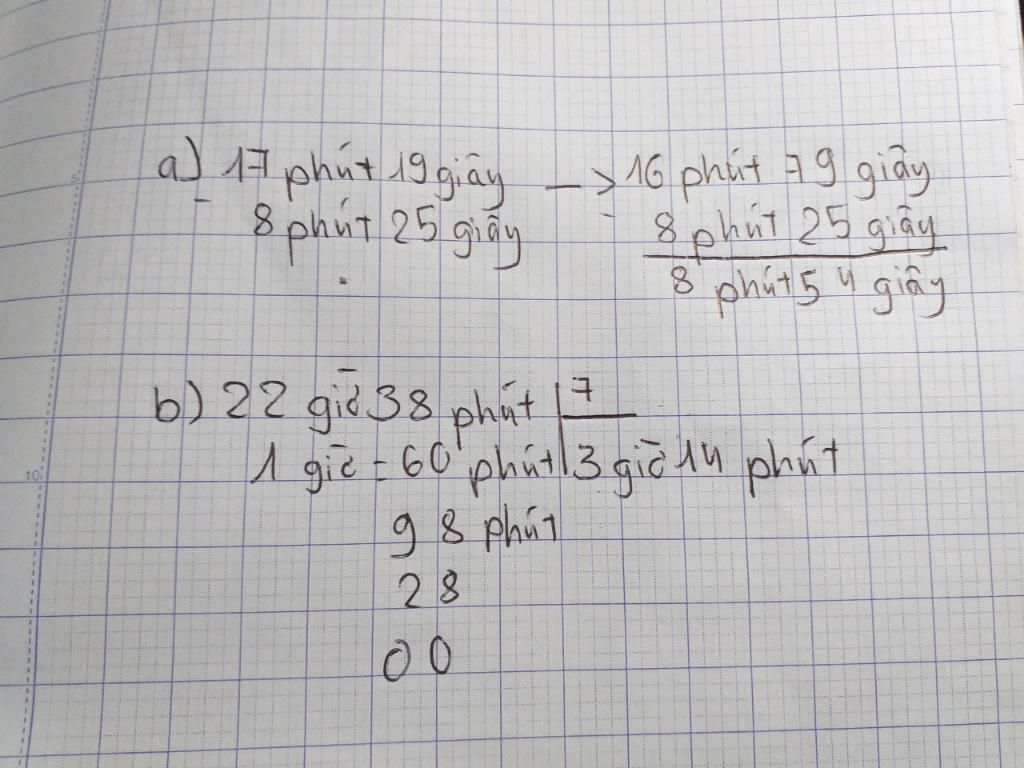 a) 17 phút 19 giây —> 16 phút 79 giây
- 8 phút 25 giây - 8 phút 25 giây
8 phút 54 giây
b) 22 giờ 38 phút 7
1 giờ = 60 phút 3 giờ 14 phút
98 phút
28
00